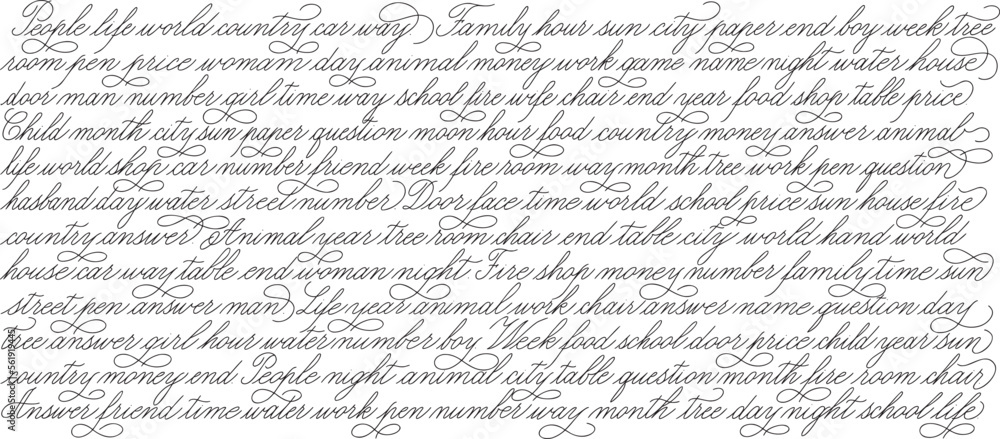 People life world country car way. Family hour sun city paper end boy week tree
room pen price womam day animal money work game name night water house
door man number girl time way school fire wife chair end year food shop table price
Child month city sun paper question moon hour food country money answer animal
life world shop car number friend week fire room way month tree work pen question
hasband day water street number. Door face time world school price sun house fire
country answer. Animal year tree room chair end table city world hand world
house car way table end woman night. Fire shop money number family time sun
street pen answer man. Life year animal work chair answer name question day
tree answer girl hour water number boy. Week food school door price child year sun
country money end. People night animal city table question month fire room chair
answer friend time water work pen number way month tree day night school life
Adobe Stock | #561919445